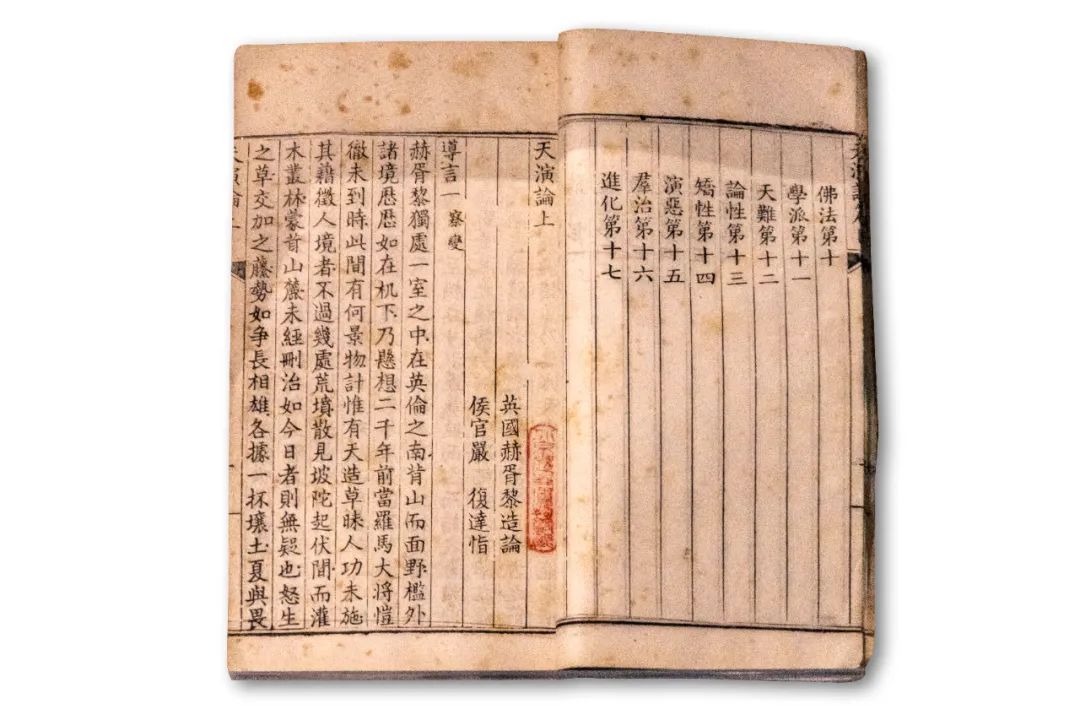 佛法第十
學派第十一
天難第十二
論性第十三
矯性第十四
演惡第十五
羣治第十六
進化第十七
天演論上
英國赫胥黎造論
侯官嚴 復達恉
導言一 察變
赫胥黎獨處一室之中在英倫之南背山而面野檻外
諸境歷歷如在机下乃懸想二千年前當羅馬大將愷
徹未到時此間有何景物計惟有天造草昧人功未施
其藉徵人境者不過幾處荒墳散見坡陀起伏間而灌
木叢林蒙茸山麓未經刪治如今日者則無疑也怒生
之草交加之藤勢如爭長相雄各據一抔壤土夏與畏